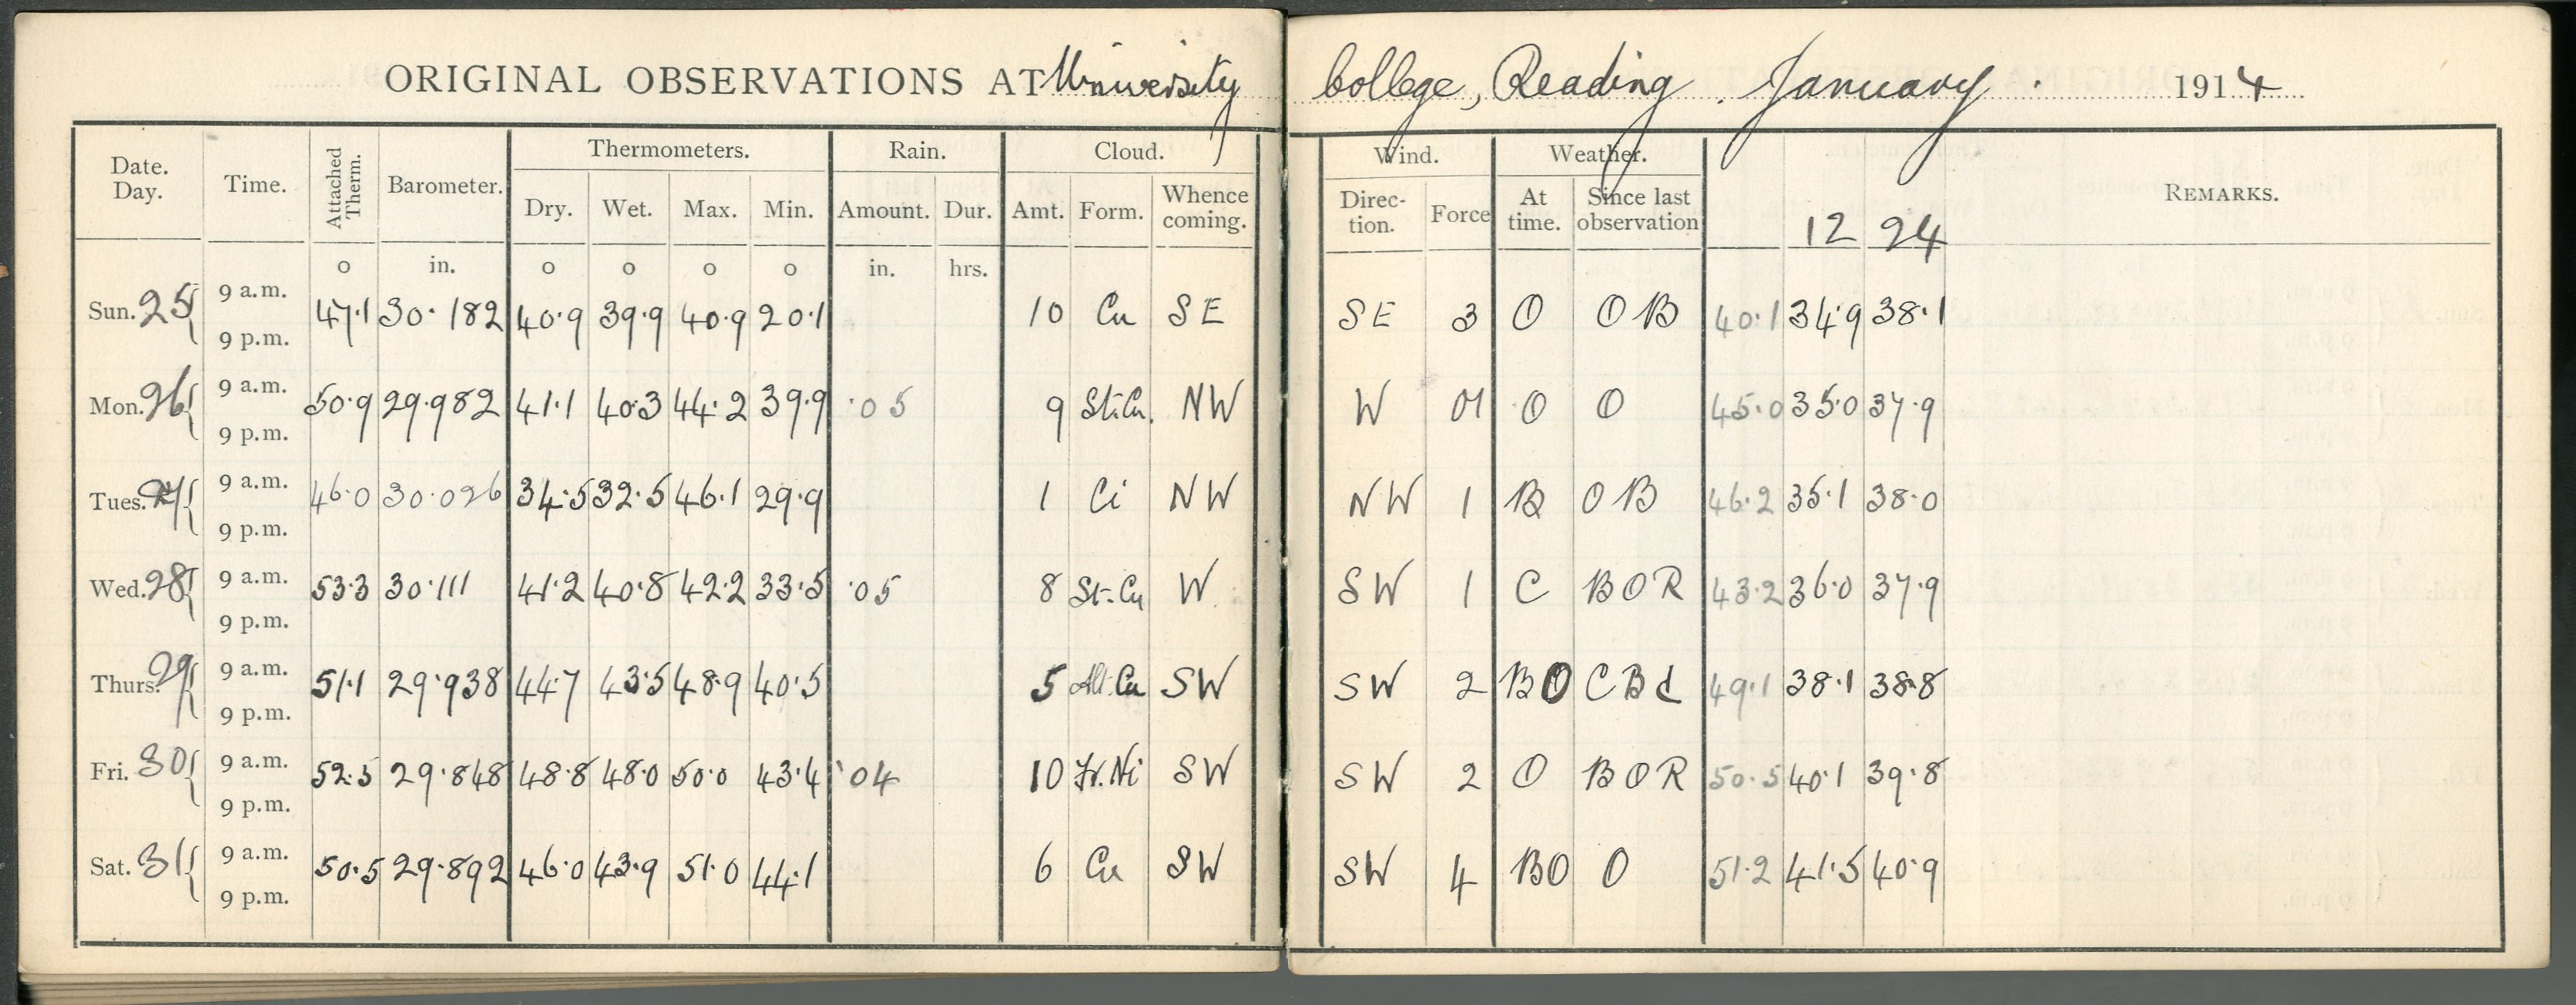 ORIGINAL OBSERVATIONS AT University College, Reading. January. 1914
Date. Day. Time. Attached Therm. Barometer. Thermometers. Rain. Cloud. Wind. Weather. REMARKS.
Dry. Wet. Max. Min. Amount. Dur. Amt. Form. Whence coming. Direc- tion. Force At time. Since last observation 12 24
o in. o o o o in. hrs.
Sun. 25 9 a.m. 47.1 30.182 40.9 39.9 40.9 20.1 10 Cu SE SE 3 O OB 40.1 34.9 38.1
9 p.m.
Mon. 26 9 a.m. 50.9 29.982 41.1 40.3 44.2 39.9 .05 9 St.Cu. NW W 01 O O 45.0 35.0 37.9
9 p.m.
Tues. 27 9 a.m. 46.0 30.026 34.5 32.5 46.1 29.9 1 Ci NW NW 1 B OB 46.2 35.1 38.0
9 p.m.
Wed. 28 9 a.m. 53.3 30.111 41.2 40.8 42.2 33.5 .05 8 St.Cu W SW 1 C BOR 43.2 36.0 37.9
9 p.m.
Thurs. 29 9 a.m. 51.1 29.938 44.7 43.5 48.9 40.5 5 Alt.Cu SW SW 2 BO CBd 49.1 38.1 38.8
9 p.m.
Fri. 30 9 a.m. 52.5 29.848 48.8 48.0 50.0 43.4 .04 10 Fr.Ni SW SW 2 O BOR 50.5 40.1 39.8
9 p.m.
Sat. 31 9 a.m. 50.5 29.892 46.0 43.9 51.0 44.1 6 Cu SW SW 4 BO O 51.2 41.5 40.9
9 p.m.